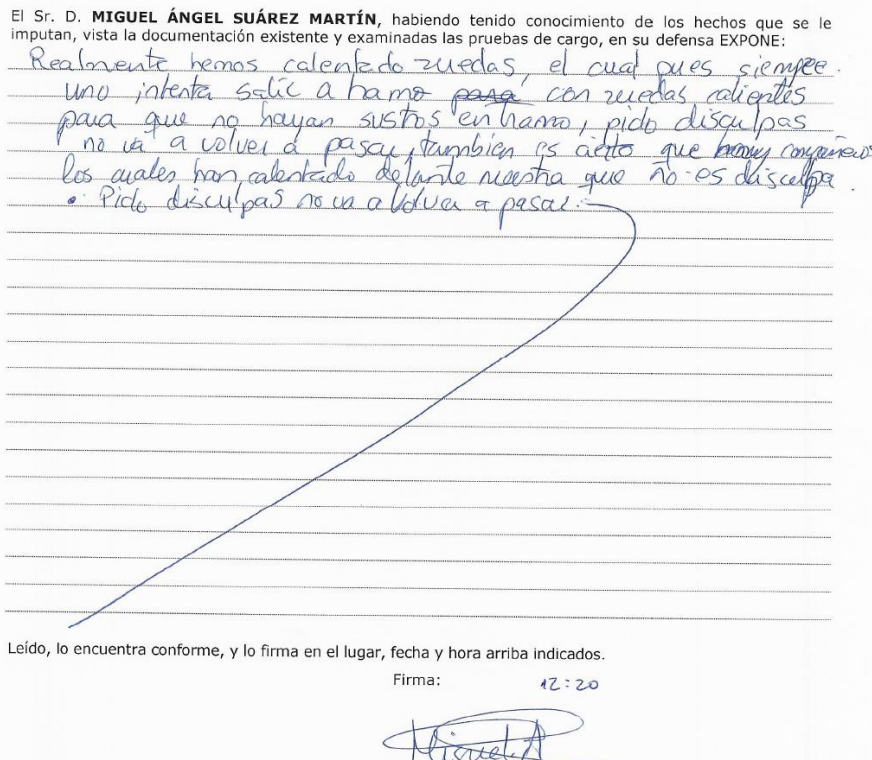 El Sr. D. MIGUEL ÁNGEL SUÁREZ MARTÍN, habiendo tenido conocimiento de los hechos que se le
imputan, vista la documentación existente y examinadas las pruebas de cargo, en su defensa EXPONE:
Realmente hemos calentado ruedas, el cual pues siempre.
uno intenta salir a tramo para con ruedas calientes
para que no hayan sustos en tramo, pido disculpas
no va a volver a pasar, tambien es cierto que compañeros
los cuales han calentado delante nuestra que no es disculpa.
• Pido disculpas no va a volver a pasar.
Leído, lo encuentra conforme, y lo firma en el lugar, fecha y hora arriba indicados.
Firma: 12:20
Miguel A